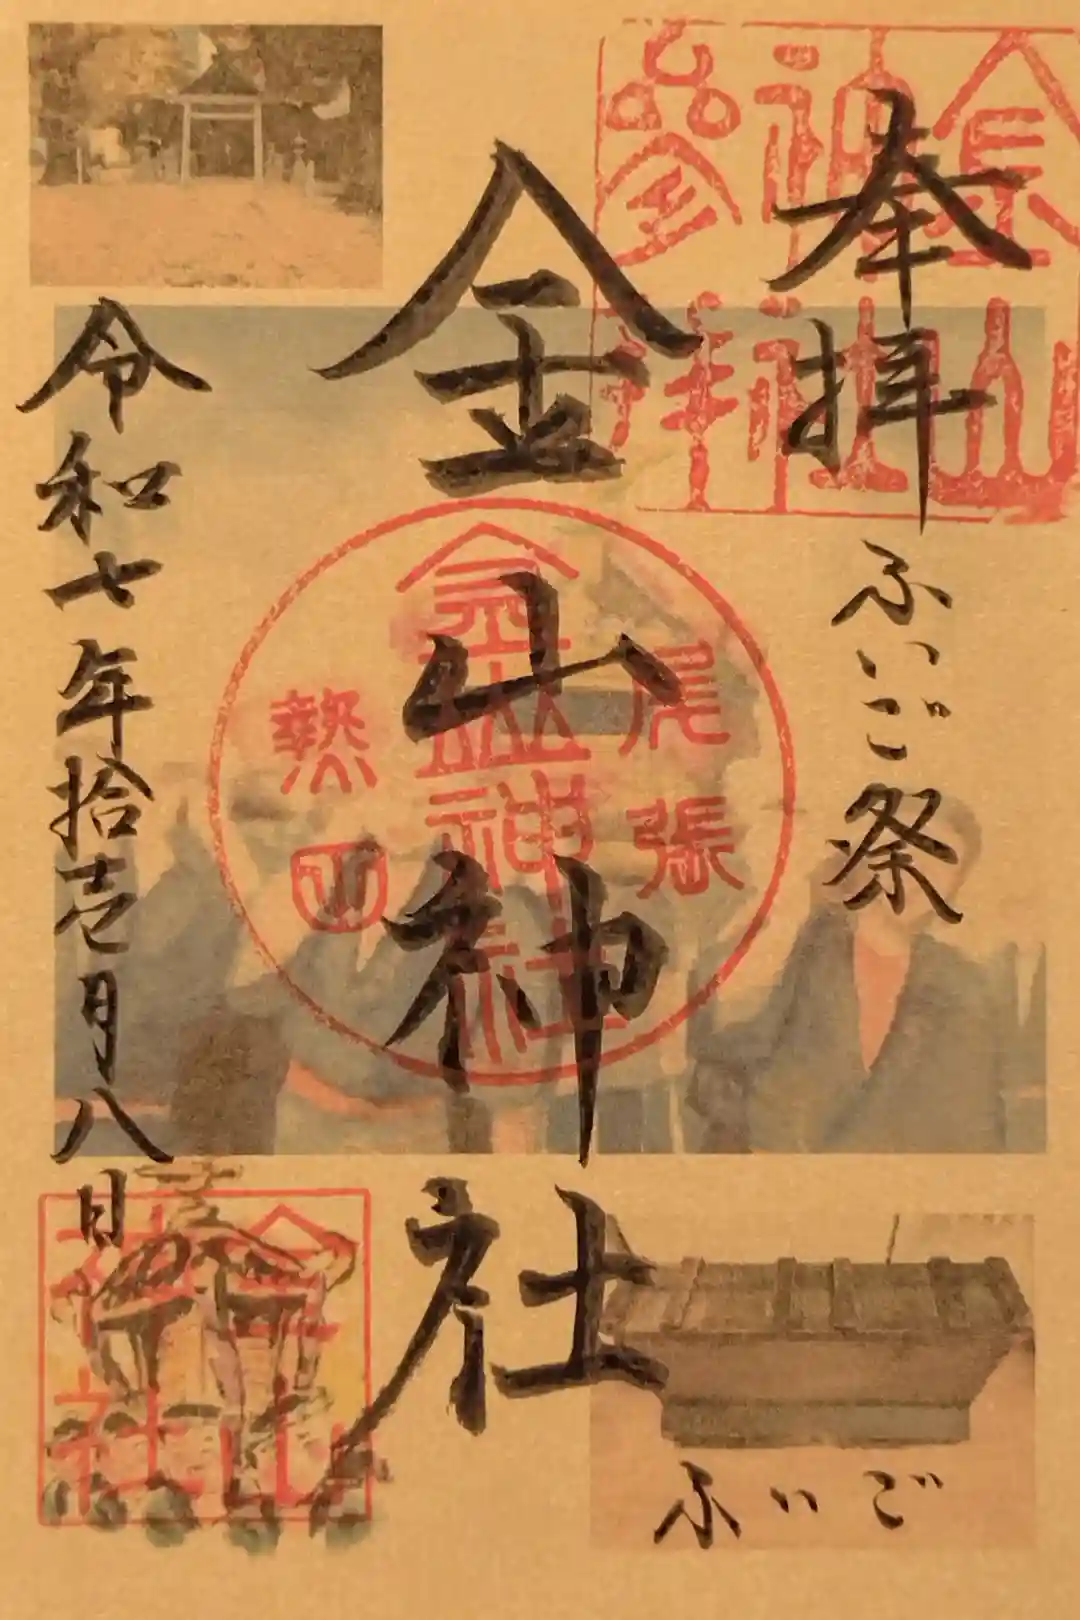 奉拝
ふいご祭
金山神社
令和七年拾壱月八日
金山
神社
参拝
尾張
金山神社
熱田
金山
神社
ふいご